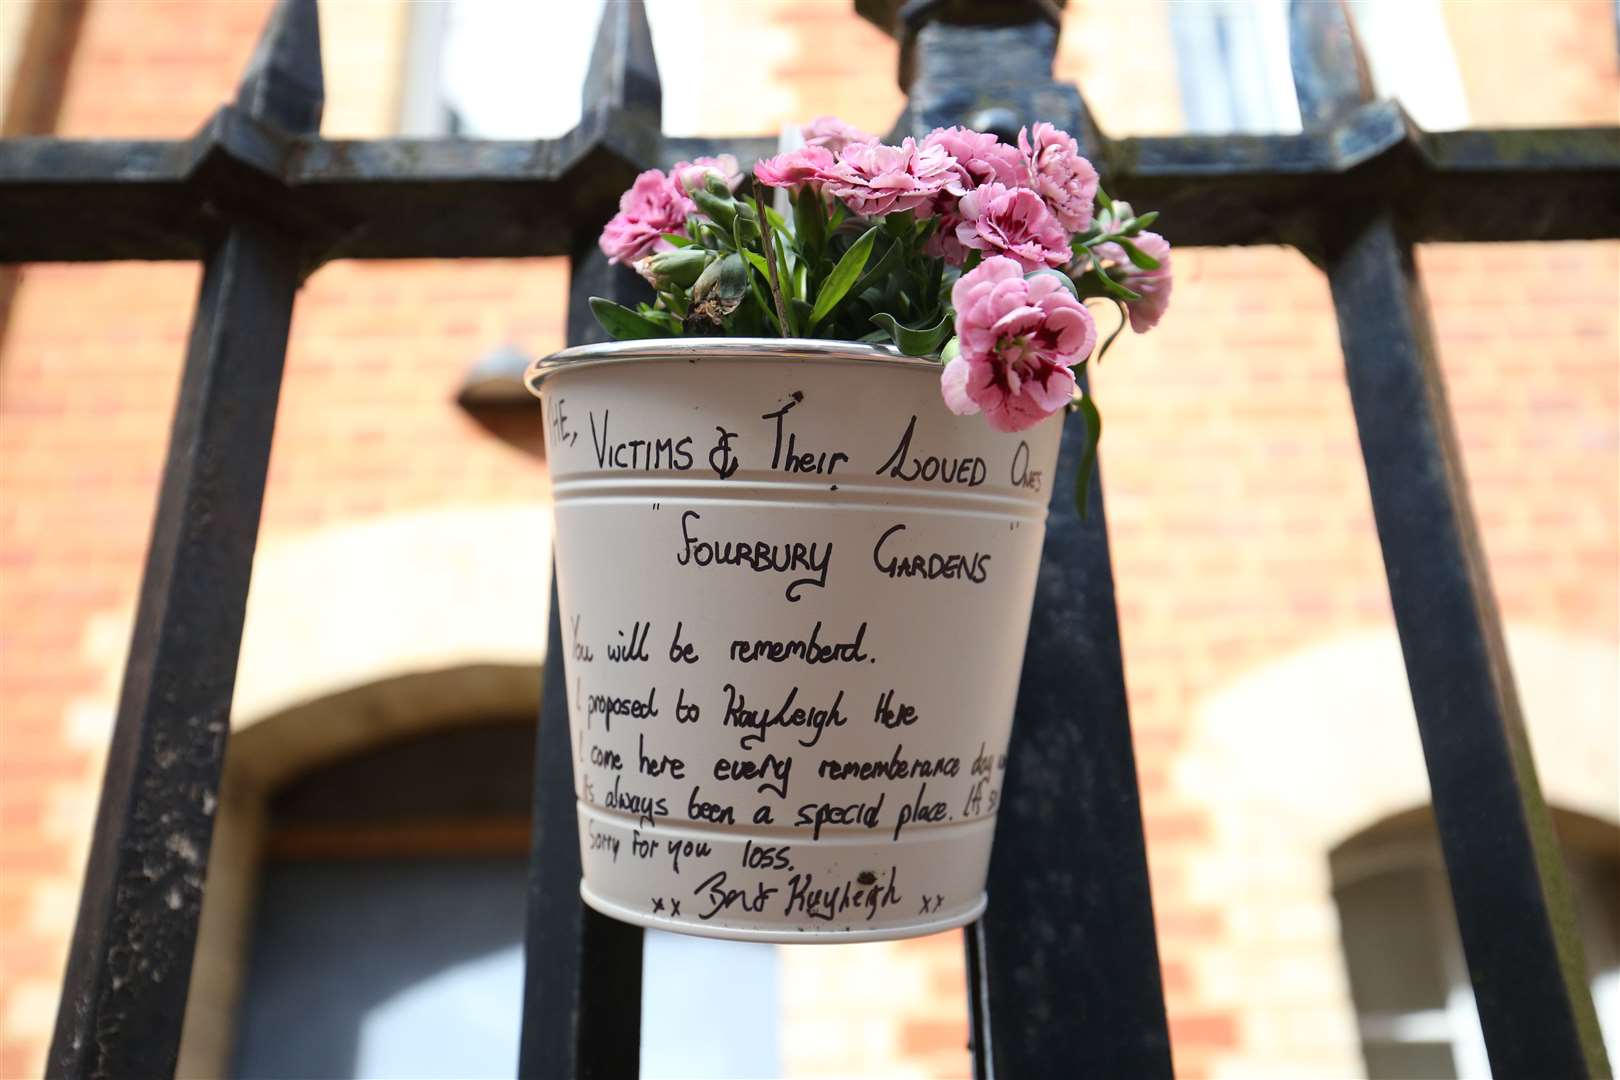 THE, VICTIMS & Their LOVED ONES
"FOURBURY GARDENS"
You will be rememberd.
I proposed to Kayleigh Here
I come here every rememberance day
It's always been a special place.
Sorry for you loss.
xx Ben & Kayleigh xx